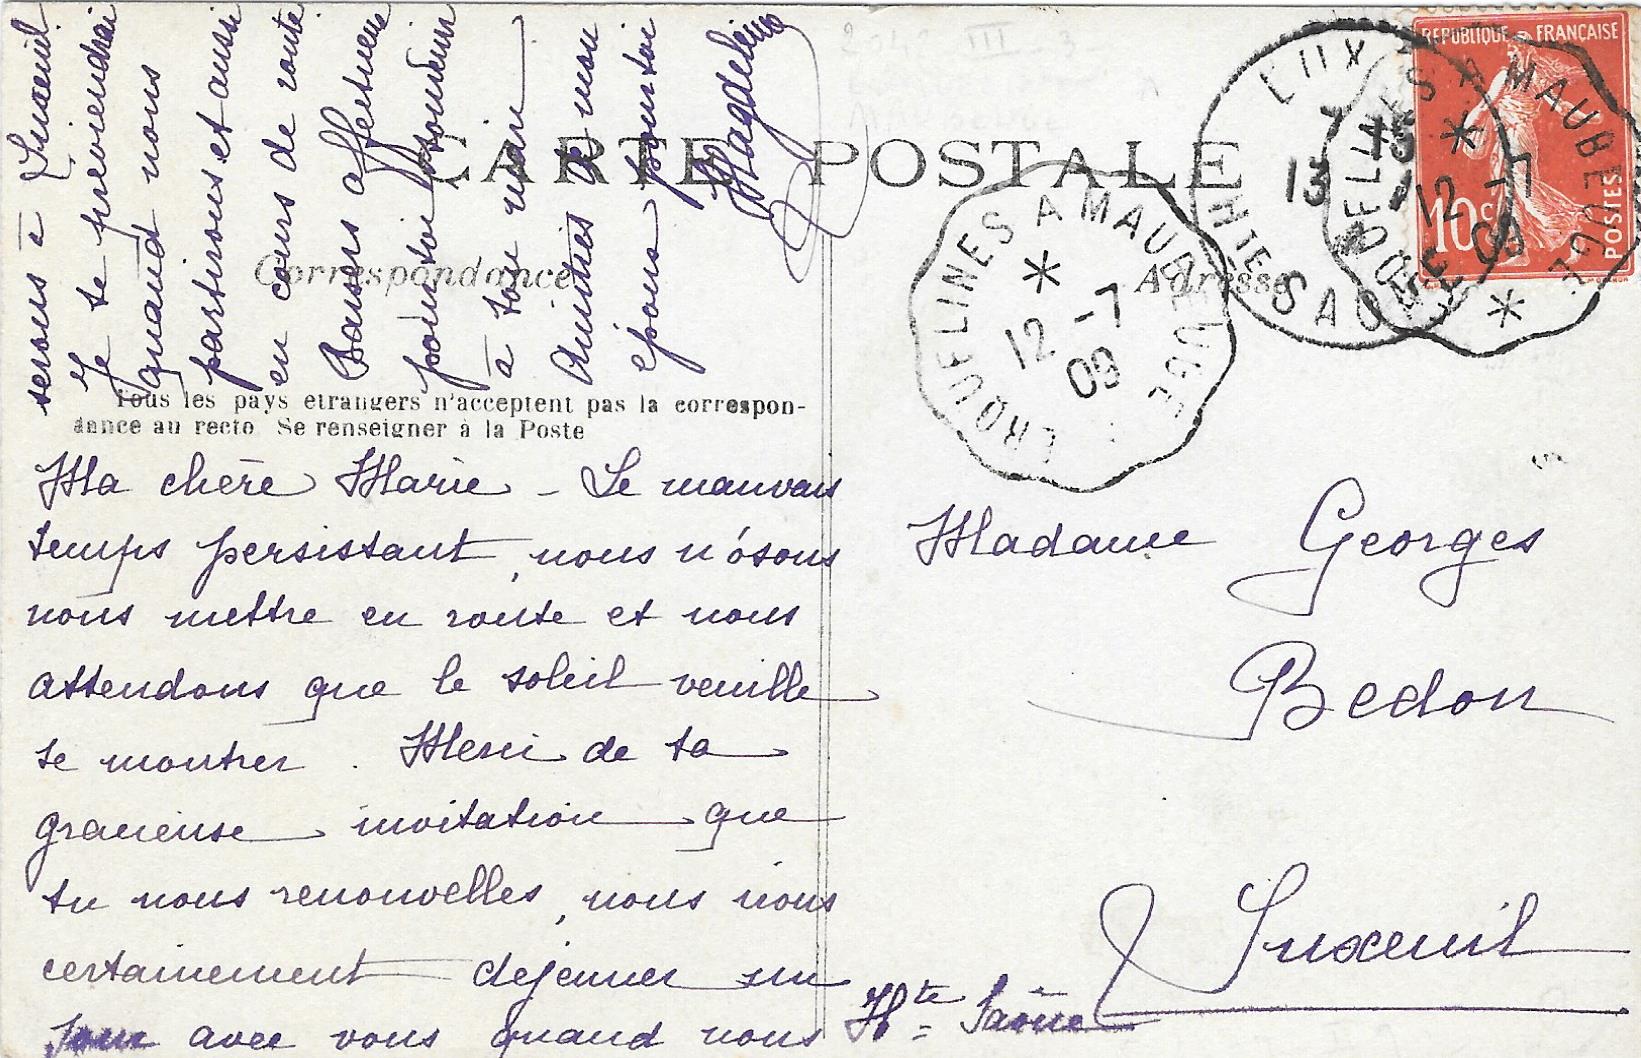 CARTE POSTALE
Correspondance
Adresse
Tous les pays etrangers n'acceptent pas la correspon-
dance au recto Se renseigner à la Poste
Ma chère Marie - Le mauvais
temps persistant, nous n'osons
nous mettre en route et nous
attendons que le soleil veuille
se montrer. Merci de ta
gracieuse invitation que
tu nous renouvelles, nous irons
certainement dejeuner un
jour avec vous quand nous
serons à Luxeuil.
Je te previendrai
quand nous
partirons et aussi
en cours de route
Baisers affectueux
pour toi souvenir
à ton mari
Amitiés de mon
époux pour toi
Magdeleine
Madame Georges
Bedon
Luxeuil
Hte Saône
REPUBLIQUE FRANÇAISE
10c
POSTES
ERQUELINES A MAUBEUGE
12 -7
09
ERQUELINES A MAUBEUGE
12 -7
09
LUX
7
13
HTE SAONE